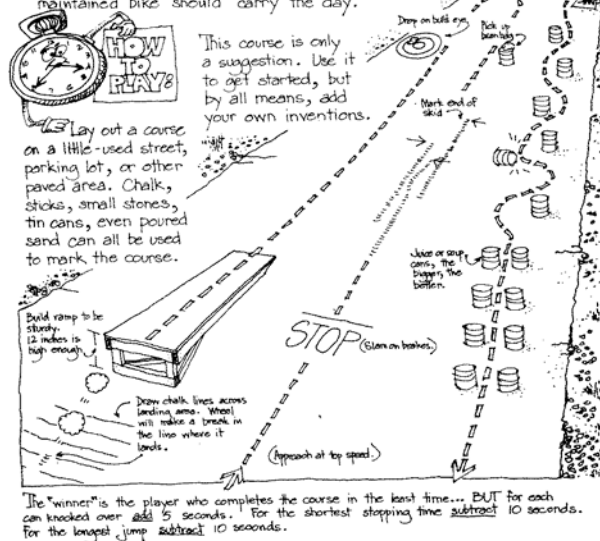 maintained bike should carry the day.
HOW
TO
PLAY!
This course is only
a suggestion. Use it
to get started, but
by all means, add
your own inventions.
Lay out a course
on a little-used street,
parking lot, or other
paved area. Chalk,
sticks, small stones,
tin cans, even poured
sand can all be used
to mark the course.
Drop on bulls eye.
Pick up
bean bag
Mark end of
skid
Juice or soup
cans, the
bigger, the
better.
Build ramp to be
sturdy.
12 inches is
high enough.
STOP (Slam on brakes.)
Draw chalk lines across
landing area. Wheel
will make a break in
the line where it
lands.
(Approach at top speed.)
The "winner" is the player who completes the course in the least time... BUT for each
can knocked over add 5 seconds. For the shortest stopping time subtract 10 seconds.
For the longest jump subtract 10 seconds.